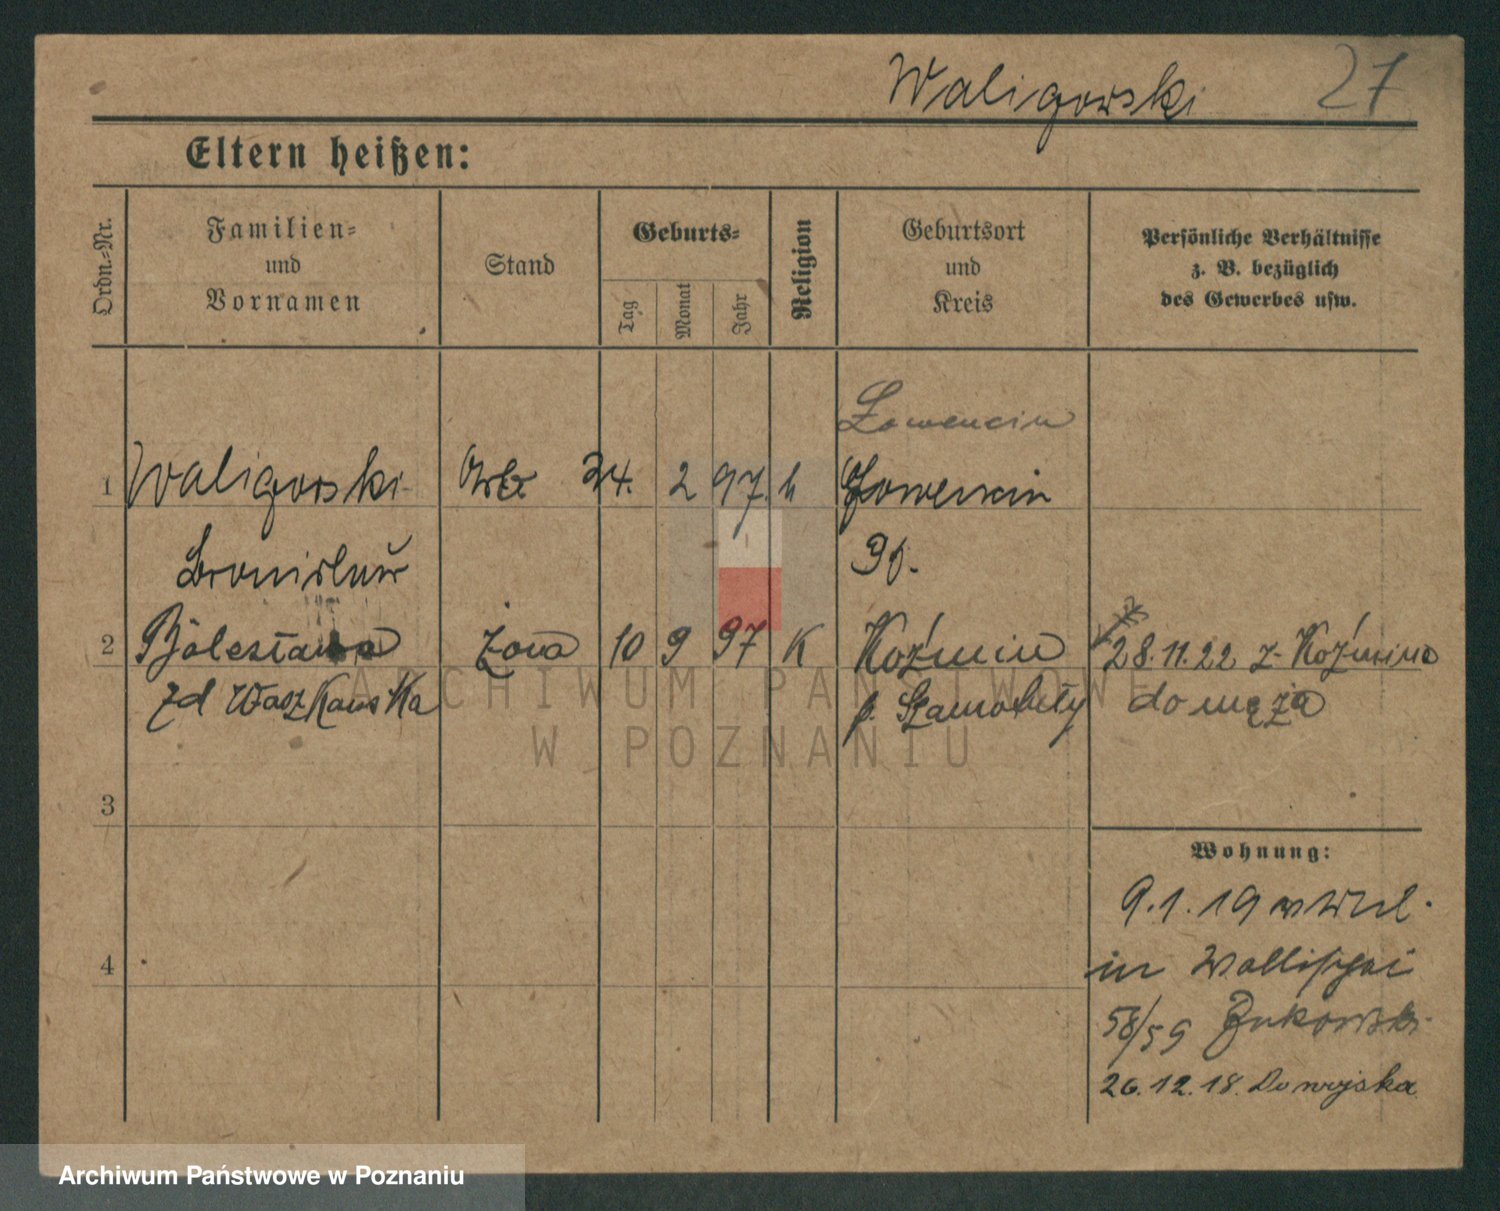 Waligorski 27
Eltern heißen:
Ordn.-Nr.
Familien-
und
Vornamen
Stand
Geburts-
Tag
Monat
Jahr
Religion
Geburtsort
und
Kreis
Persönliche Verhältnisse
z. B. bezüglich
des Gewerbes usw.
Lowencin
1 Waligorski 24. 2 97. k Lowencin
Bronislaw
2 Bolesława żona 10 9 97 K Koźmin 28.11.22 z Koźmina
zd Waszkawska p. Szamotuły do męża
3
Wohnung:
9.1.19
4 in Wallischei
58/59 Zukowski
26.12.18. Do wojska
ARCHIWUM PAŃSTWOWE
W POZNANIU
Archiwum Państwowe w Poznaniu